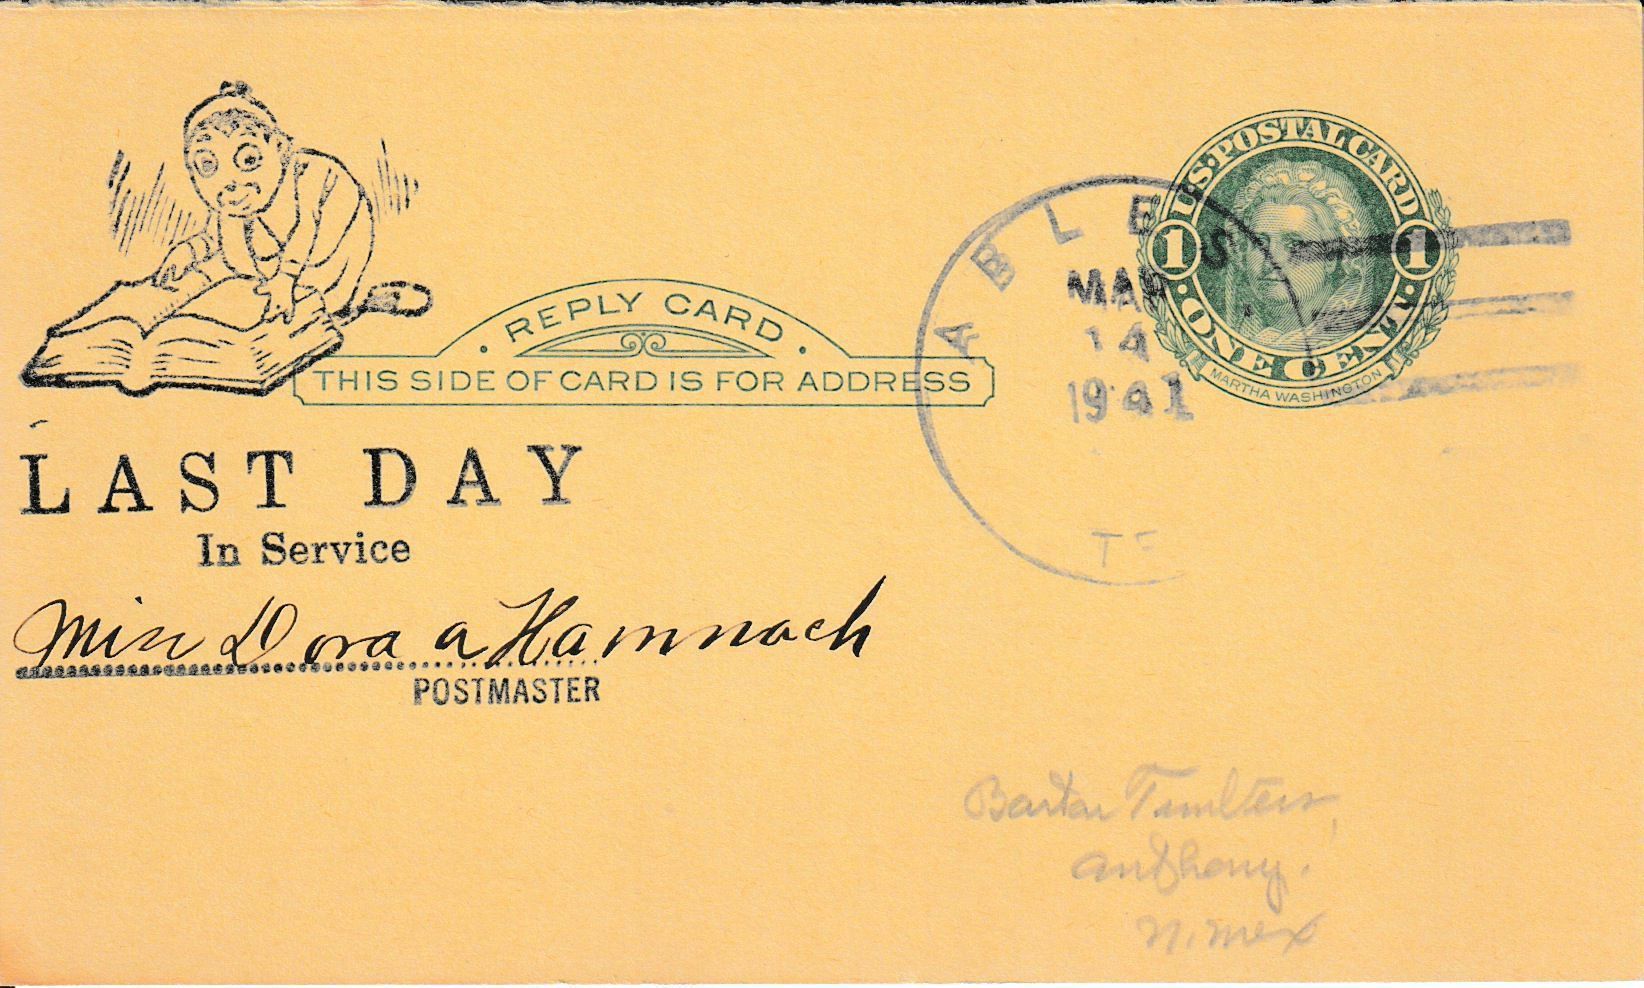 U.S. POSTAL CARD
1 1
ONE CENT
MARTHA WASHINGTON
ABLES
MAR
14
1941
TE
REPLY CARD
THIS SIDE OF CARD IS FOR ADDRESS
LAST DAY
In Service
Miss Dora a Hamnach
POSTMASTER
Anthony.
N. Mex